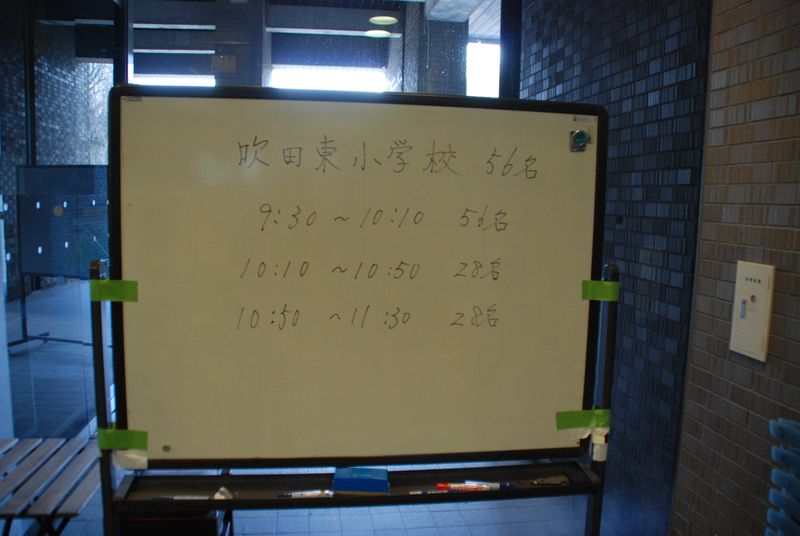 吹田東小学校 56名
9:30 ~ 10:10 56名
10:10 ~ 10:50 28名
10:50 ~ 11:30 28名